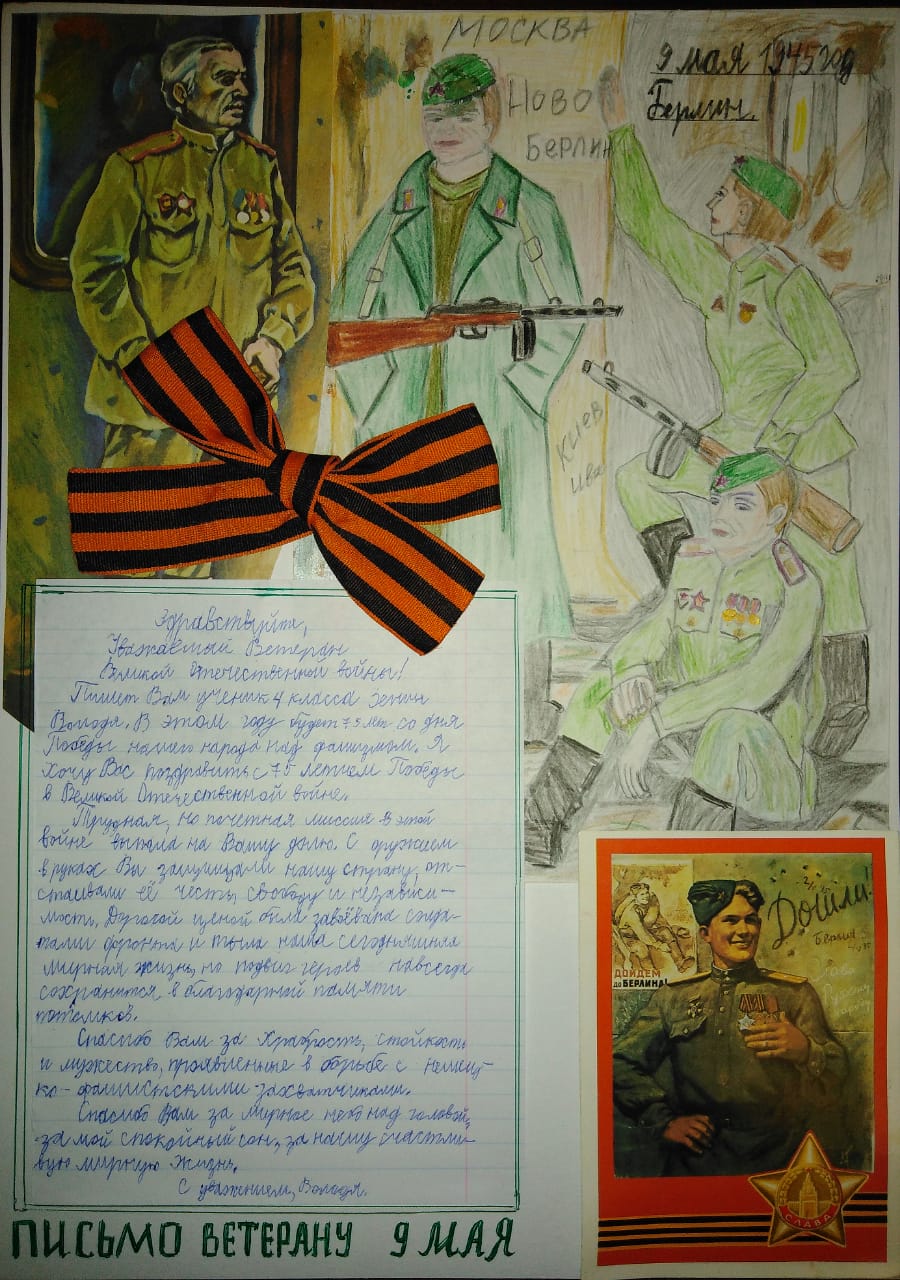 МОСКВА
НОВО
БЕРЛИН
9 мая 1945 год
Берлин.
КИЕВ
Ива
Здравствуйте,
Уважаемый Ветеран
Великой Отечественной войны!
Пишет Вам ученик 4 класса
Володя. В этом году будет 75 лет со дня
Победы нашего народа над фашизмом. Я
хочу Вас поздравить с 75 летием Победы
в Великой Отечественной войне.
Трудная, но почетная миссия в этой
войне выпала на Вашу долю. С оружием
в руках Вы защищали нашу страну, от-
стаивали её честь, свободу и независи-
мость. Дорогой ценой была завоёвана солда-
тами фронта и тыла наша сегодняшняя
мирная жизнь, но подвиг героев навсегда
сохранится в благодарной памяти
потомков.
Спасибо Вам за храбрость, стойкость
и мужество, проявленные в борьбе с немец-
ко-фашистскими захватчиками.
Спасибо Вам за мирное небо над головой,
за мой спокойный сон, за нашу счастли-
вую мирную жизнь.
С уважением, Володя.
ПИСЬМО ВЕТЕРАНУ 9 МАЯ
Дошли!
Берлин
Слава
Русскому
народу
ДОЙДЕМ
ДО БЕРЛИНА!
СЛАВА